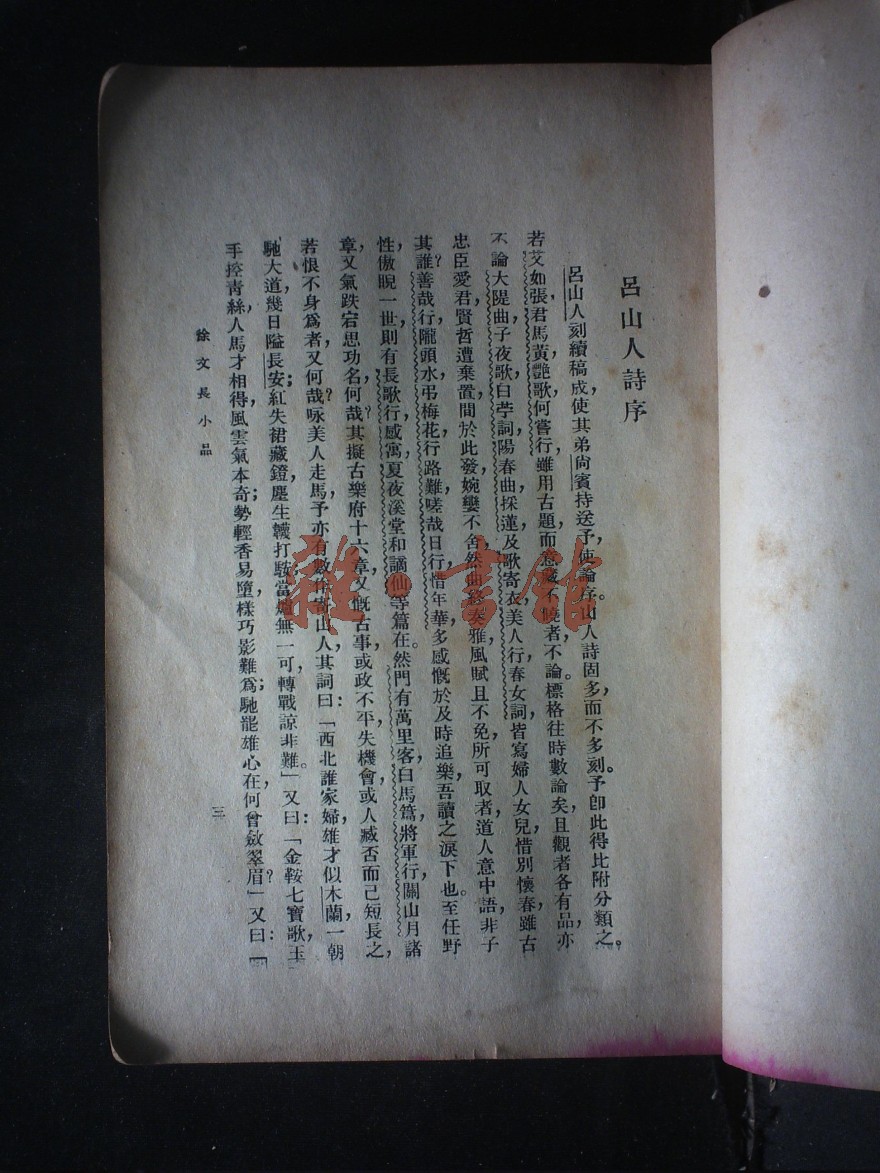 呂山人詩序
呂山人刻續稿成，使其弟尙賓持送予，使論序。山人詩固多而不多刻。予卽此得比附分類之。
若艾如張，君馬黃，豔歌何嘗行，雖用古題，而意不曉者，不論。標格往時數論矣，且觀者各有品，亦
不論。大隄曲，子夜歌，白苧詞，陽春曲，採蓮，及歌寄衣，美人行，春女詞，皆寫婦人女兒惜別懷春，雖古
忠臣愛君，賢哲遭棄置，間於此發，婉孌不舍，然曲終奏雅，風賦且不免，所可取者，道人意中語，非子
其誰善哉？行隴頭水，弔梅花，行路難，嗟哉日行，惜年華，多感慨於及時追樂，吾讀之淚下也。至任野
性，傲睨一世，則有長歌行，感寓，夏夜溪堂和謫仙等篇在。然門有萬里客，白馬篇，將軍行，關山月諸
章，又氣跌宕，思功名，何哉？其擬古樂府十六章，又慨古事或政不平，失機會，或人臧否而己短長之，
若恨不身爲者，又何哉？咏美人走馬，予亦有數作寄山人，其詞曰：「西北誰家婦，雄才似木蘭，一朝
馳大道，幾日隘長安；紅失裙藏鐙，塵生韈打鞍；當壚無一可，轉戰諒非難。」又曰：「金鞍七寶歌，玉
手控靑絲，人馬才相得，風雲氣本奇；勢輕香易墮，樣巧影難爲；馳罷雄心在，何曾斂翠眉？」又曰：「
徐文長小品
三
雜·書館